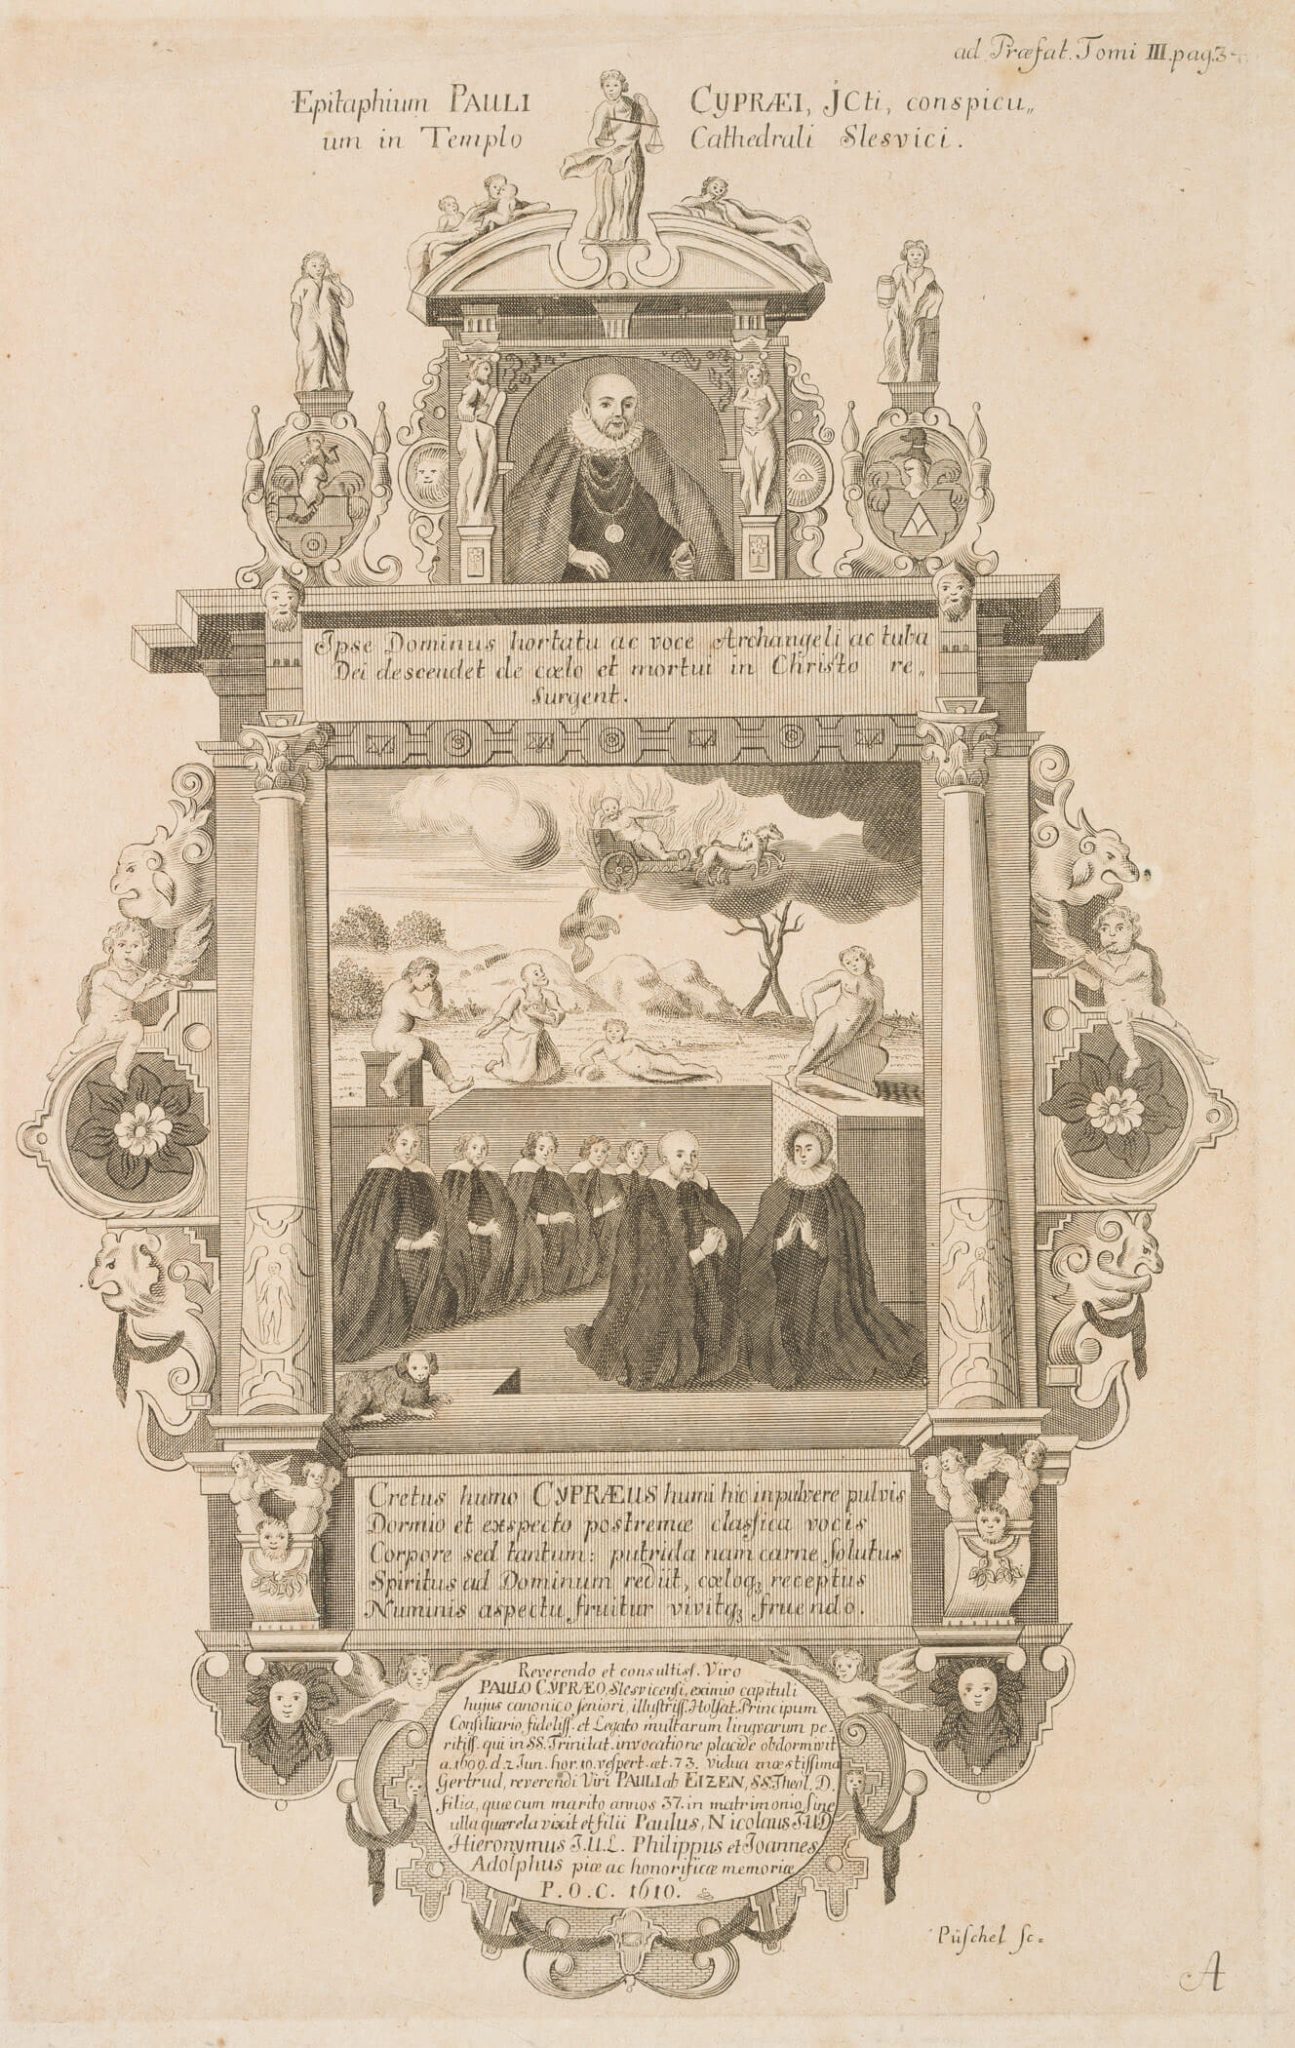 ad Præfat. Tomi III. pag. 3
Epitaphium PAULI CYPRÆI, JCti, conspicu„
um in Templo Cathedrali Slesvici.
Ipse Dominus hortatu ac voce Archangeli ac tuba
Dei descendet de cœlo et mortui in Christo re„
surgent.
Cretus humo CYPRÆUS humi hic in pulvere pulvis
Dormio et exspecto postremæ classica vocis
Corpore sed tantum: putrida nam carne solutus
Spiritus ad Dominum rediit, cœloqꝫ receptus
Numinis aspectu fruitur vivitqꝫ fruendo.
Reverendo et consultiss. Viro
PAULO CYPRÆO, Slesvicensi, eximio capituli
hujus canonico seniori, illustriss. Holsat. Principum
Consiliario fideliss. et Legato multarum lingvarum pe-
ritiss. qui in SS. Trinitat. invocatione placide obdormivit
a. 1609. d. 2 Jun. hor. 10. vespert. æt. 73. vidua mœstissima
Gertrud, reverendi Viri PAULI ab EIZEN, SS. Theol. D.
filia, quæ cum marito annos 37. in matrimonio sine
ulla quærela vixit et filii Paulus, Nicolaus J.U.D.
Hieronymus J.U.L. Philippus et Joannes
Adolphus piæ ac honorificæ memoriæ
P. O. C. 1610.
Püschel sc.
A